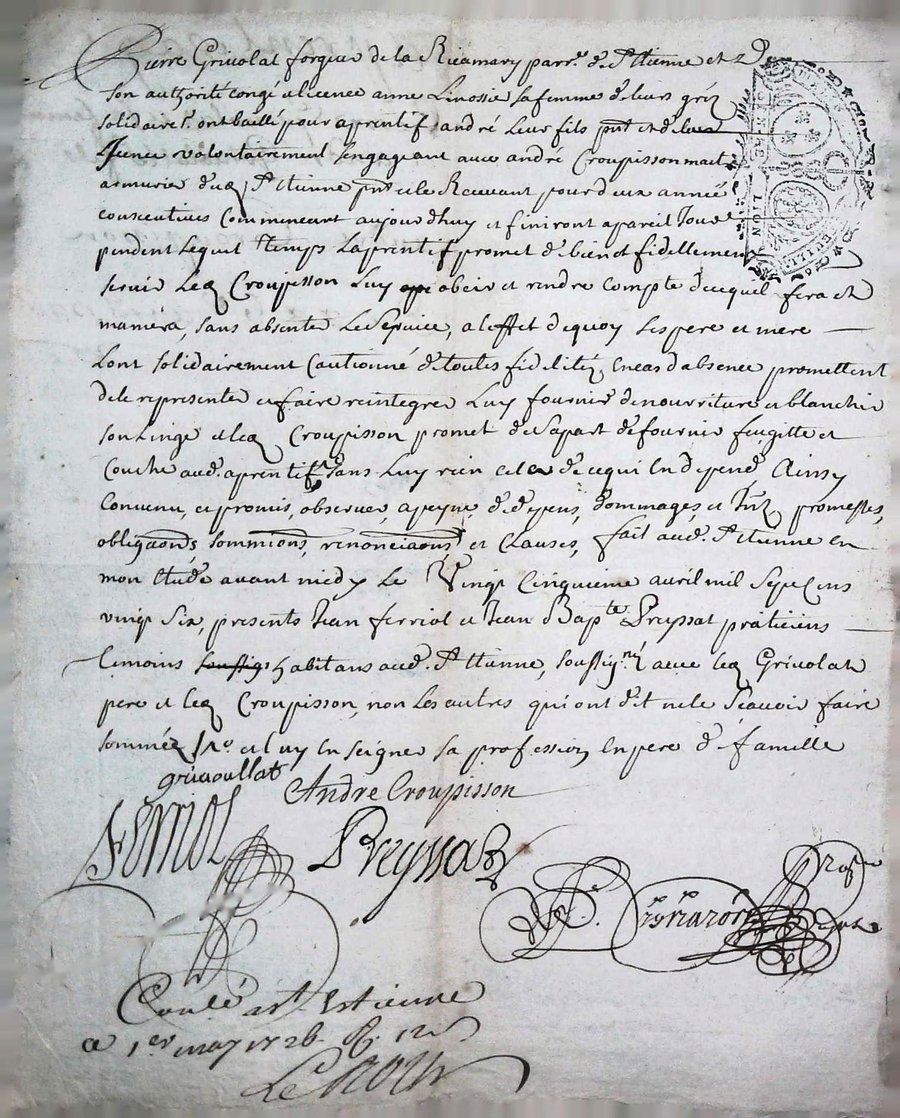 Pierre Grivolat forgeur de la Ricamary parr.e de St Etienne et de
son authorité congé et licence anne Linossie sa femme de leurs gréz
solidaire.t ont baillé pour aprentif andré Leur fils pnt et de leur
volontairement s'engageant avec andré Croupisson mait.
armurier dud. St Etienne pnt et le Recevant pour deux année
consecutives Commencant aujourdhuy et finiront a pareil Jour
pendent Lequel temps Laprentif promet de bien et fidellement
servir Led Croupisson Luy obeir et rendre compte de cequil fera et
maniera, sans absenter Le Service, a leffet de quoy Les pere et mere
Lont solidairement Cautionné de toutes fidelitéz, en cas d absence promettent
de le representer et faire reintegrer Luy fournir de nourriture et blanchir
son Linge et led Croupisson promet de sa part de fournir feu gitte et
Couche aud. aprentif sans Luy rien celer de ce qui en depend, Ainsy
Convenu, et promis, observer, a peyne de depens, dommages, et Intz promesses,
obligaons, sommions, renonciaons et Clauses, fait aud. St Etienne en
mon Etude avant midy Le Vingt Cinquieme avril mil sept cens
vingt six, presents Jean ferriol et Jean Bapte Preyssat praticiens
temoins habitans aud. St Etienne, soussignéz avec led Grivolat
pere et led Croupisson, non Les autres qui ont dit ne le scavoir faire
sommés et luy enseigner sa profession en pere de famille
grivoullat
Andre Croupisson
Ferriol
Preyssat
Conlé a St Estienne
a 1er may 1726 R. 12 s
GENERALITE
LION